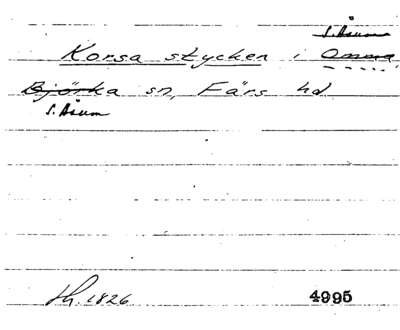 S. Åsum
Korsa stycken i Omma
Björka sn, Färs hd
S. Åsum
Sk. 1826 4995